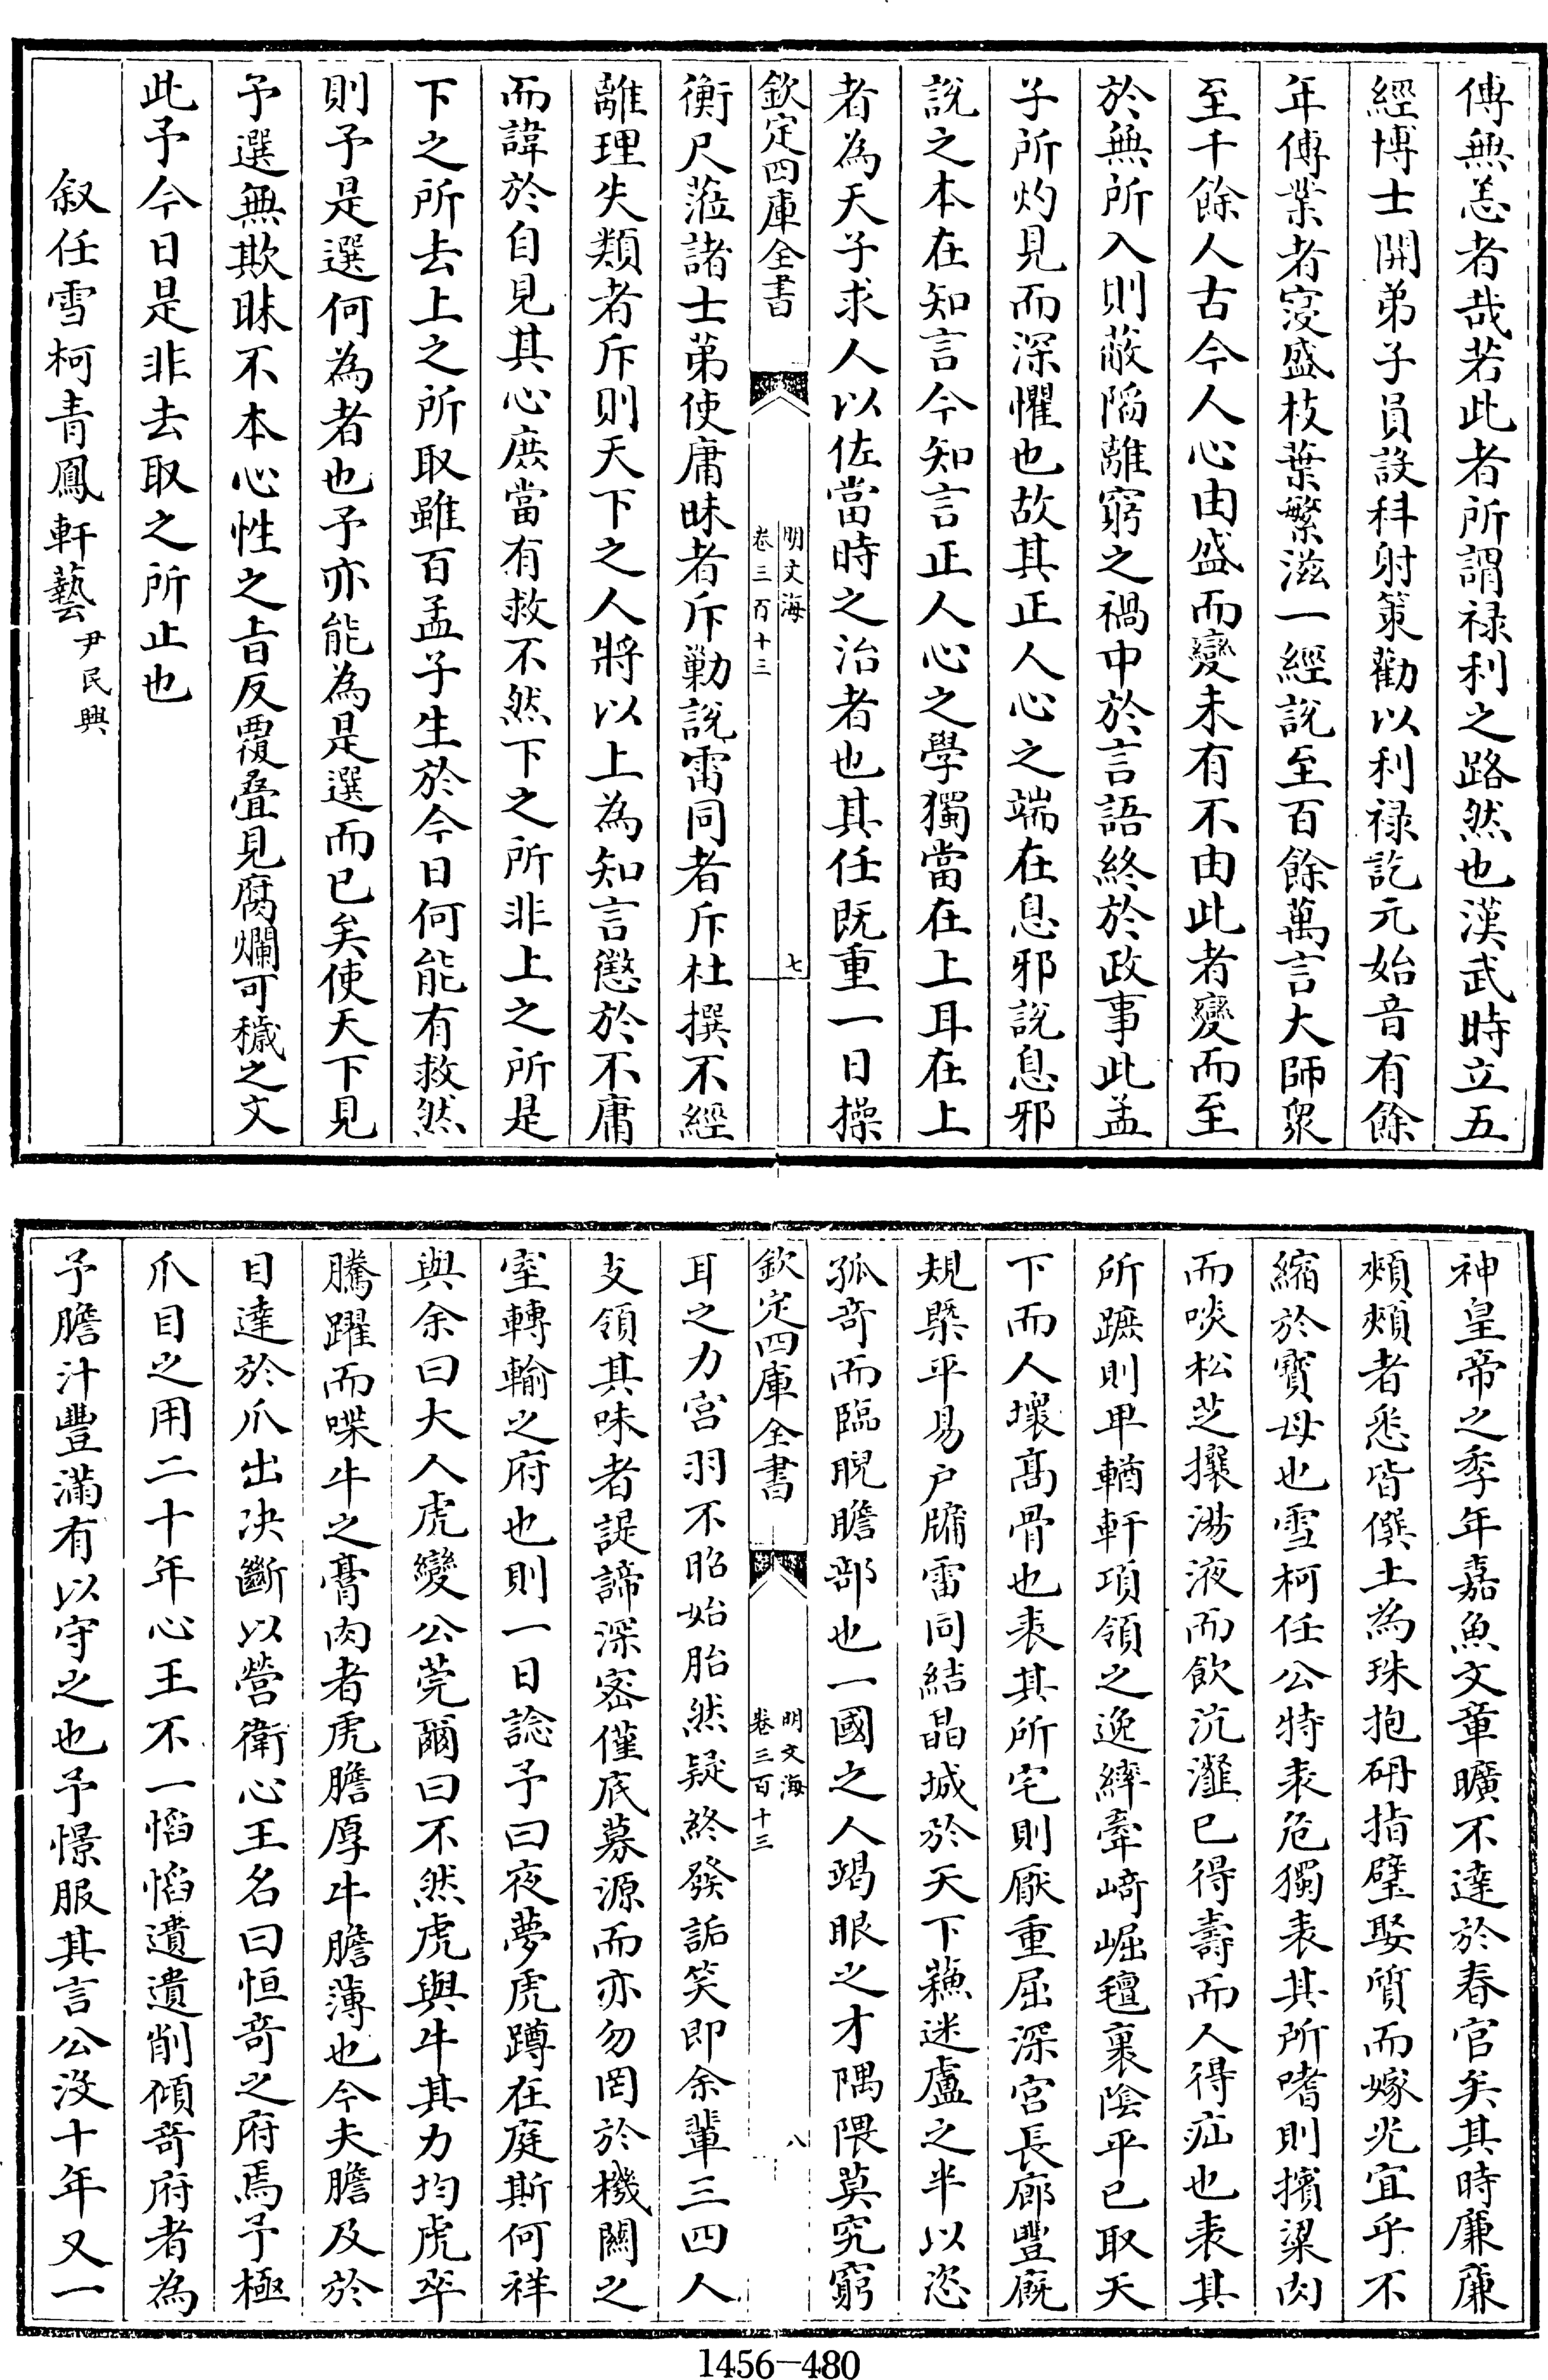 傳無恙者哉若此者所謂禄利之路然也漢武時立五
經博士開弟子員設科射策勸以利禄訖元始音有餘
年傳業者寖盛枝葉繁滋一經說至百餘萬言大師衆
至千餘人古今人心由盛而變未有不由此者變而至
於無所入則蔽陷離窮之禍中於言語終於政事此孟
子所灼見而深懼也故其正人心之端在息邪說息邪
說之本在知言今知言正人心之學獨當在上耳在上
者為天子求人以佐當時之治者也其任既重一日操
欽定四庫全書
明文海
卷三百十三
七
衡尺蒞諸士苐使庸昧者斥勦說雷同者斥杜撰不經
離理失類者斥則天下之人將以上為知言懲於不庸
而諱於自見其心庶當有救不然下之所非上之所是
下之所去上之所取雖百孟子生於今日何能有救然
則予是選何為者也予亦能為是選而已矣使天下見
予選無欺昧不本心性之旨反覆疊見腐爛可穢之文
此予今日是非去取之所止也
叙任雪柯青鳳軒藝
尹民興
神皇帝之季年嘉魚文章曠不達於春官矣其時廉廉
頰頰者悉皆僎土為珠抱硏指璧娶質而嫁光宜乎不
縮於寳母也雪柯任公特表危獨表其所嗜則擯粱肉
而啖松芝攘湯液而飲沆瀣已得壽而人得疝也表其
所蹠則卑輶軒項領之逸綷牽﨑崛氊裹陰平已取天
下而人壞髙骨也表其所宅則厭重屈深宮長廊豐廐
規槩平易户牖雷同結晶城於天下蘓迷盧之半以恣
孤竒而臨睨贍部也一國之人竭眼之才隅隈莫究窮
欽定四庫全書
明文海
卷三百十三
八
耳之力宫羽不昭始胎然疑終發詬笑即余輩三四人
支領其味者諟諦深宻僅底募源而亦勿罔於機闗之
室轉輸之府也則一日諗予曰夜夢虎蹲在庭斯何祥
與余曰大人虎變公莞爾曰不然虎與牛其力均虎卒
騰躍而喋牛之膏肉者虎膽厚牛膽薄也今夫膽及於
目達於爪出决斷以營衛心王名曰恒竒之府焉予極
爪目之用二十年心王不一慆慆遺遺削傾竒府者為
予膽汁豐滿有以守之也予憬服其言公没十年又一
1456-480